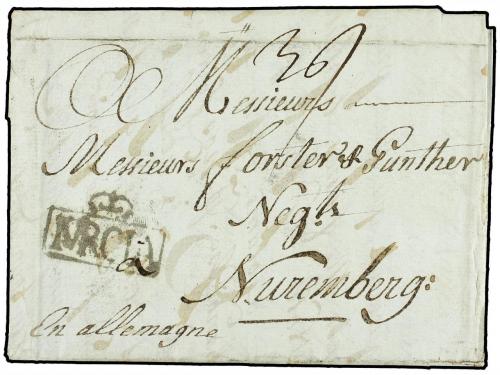 36
A Messieurs
Messieurs Forster & Günther
Negts
MRCIA
à
Nuremberg:
En allemagne